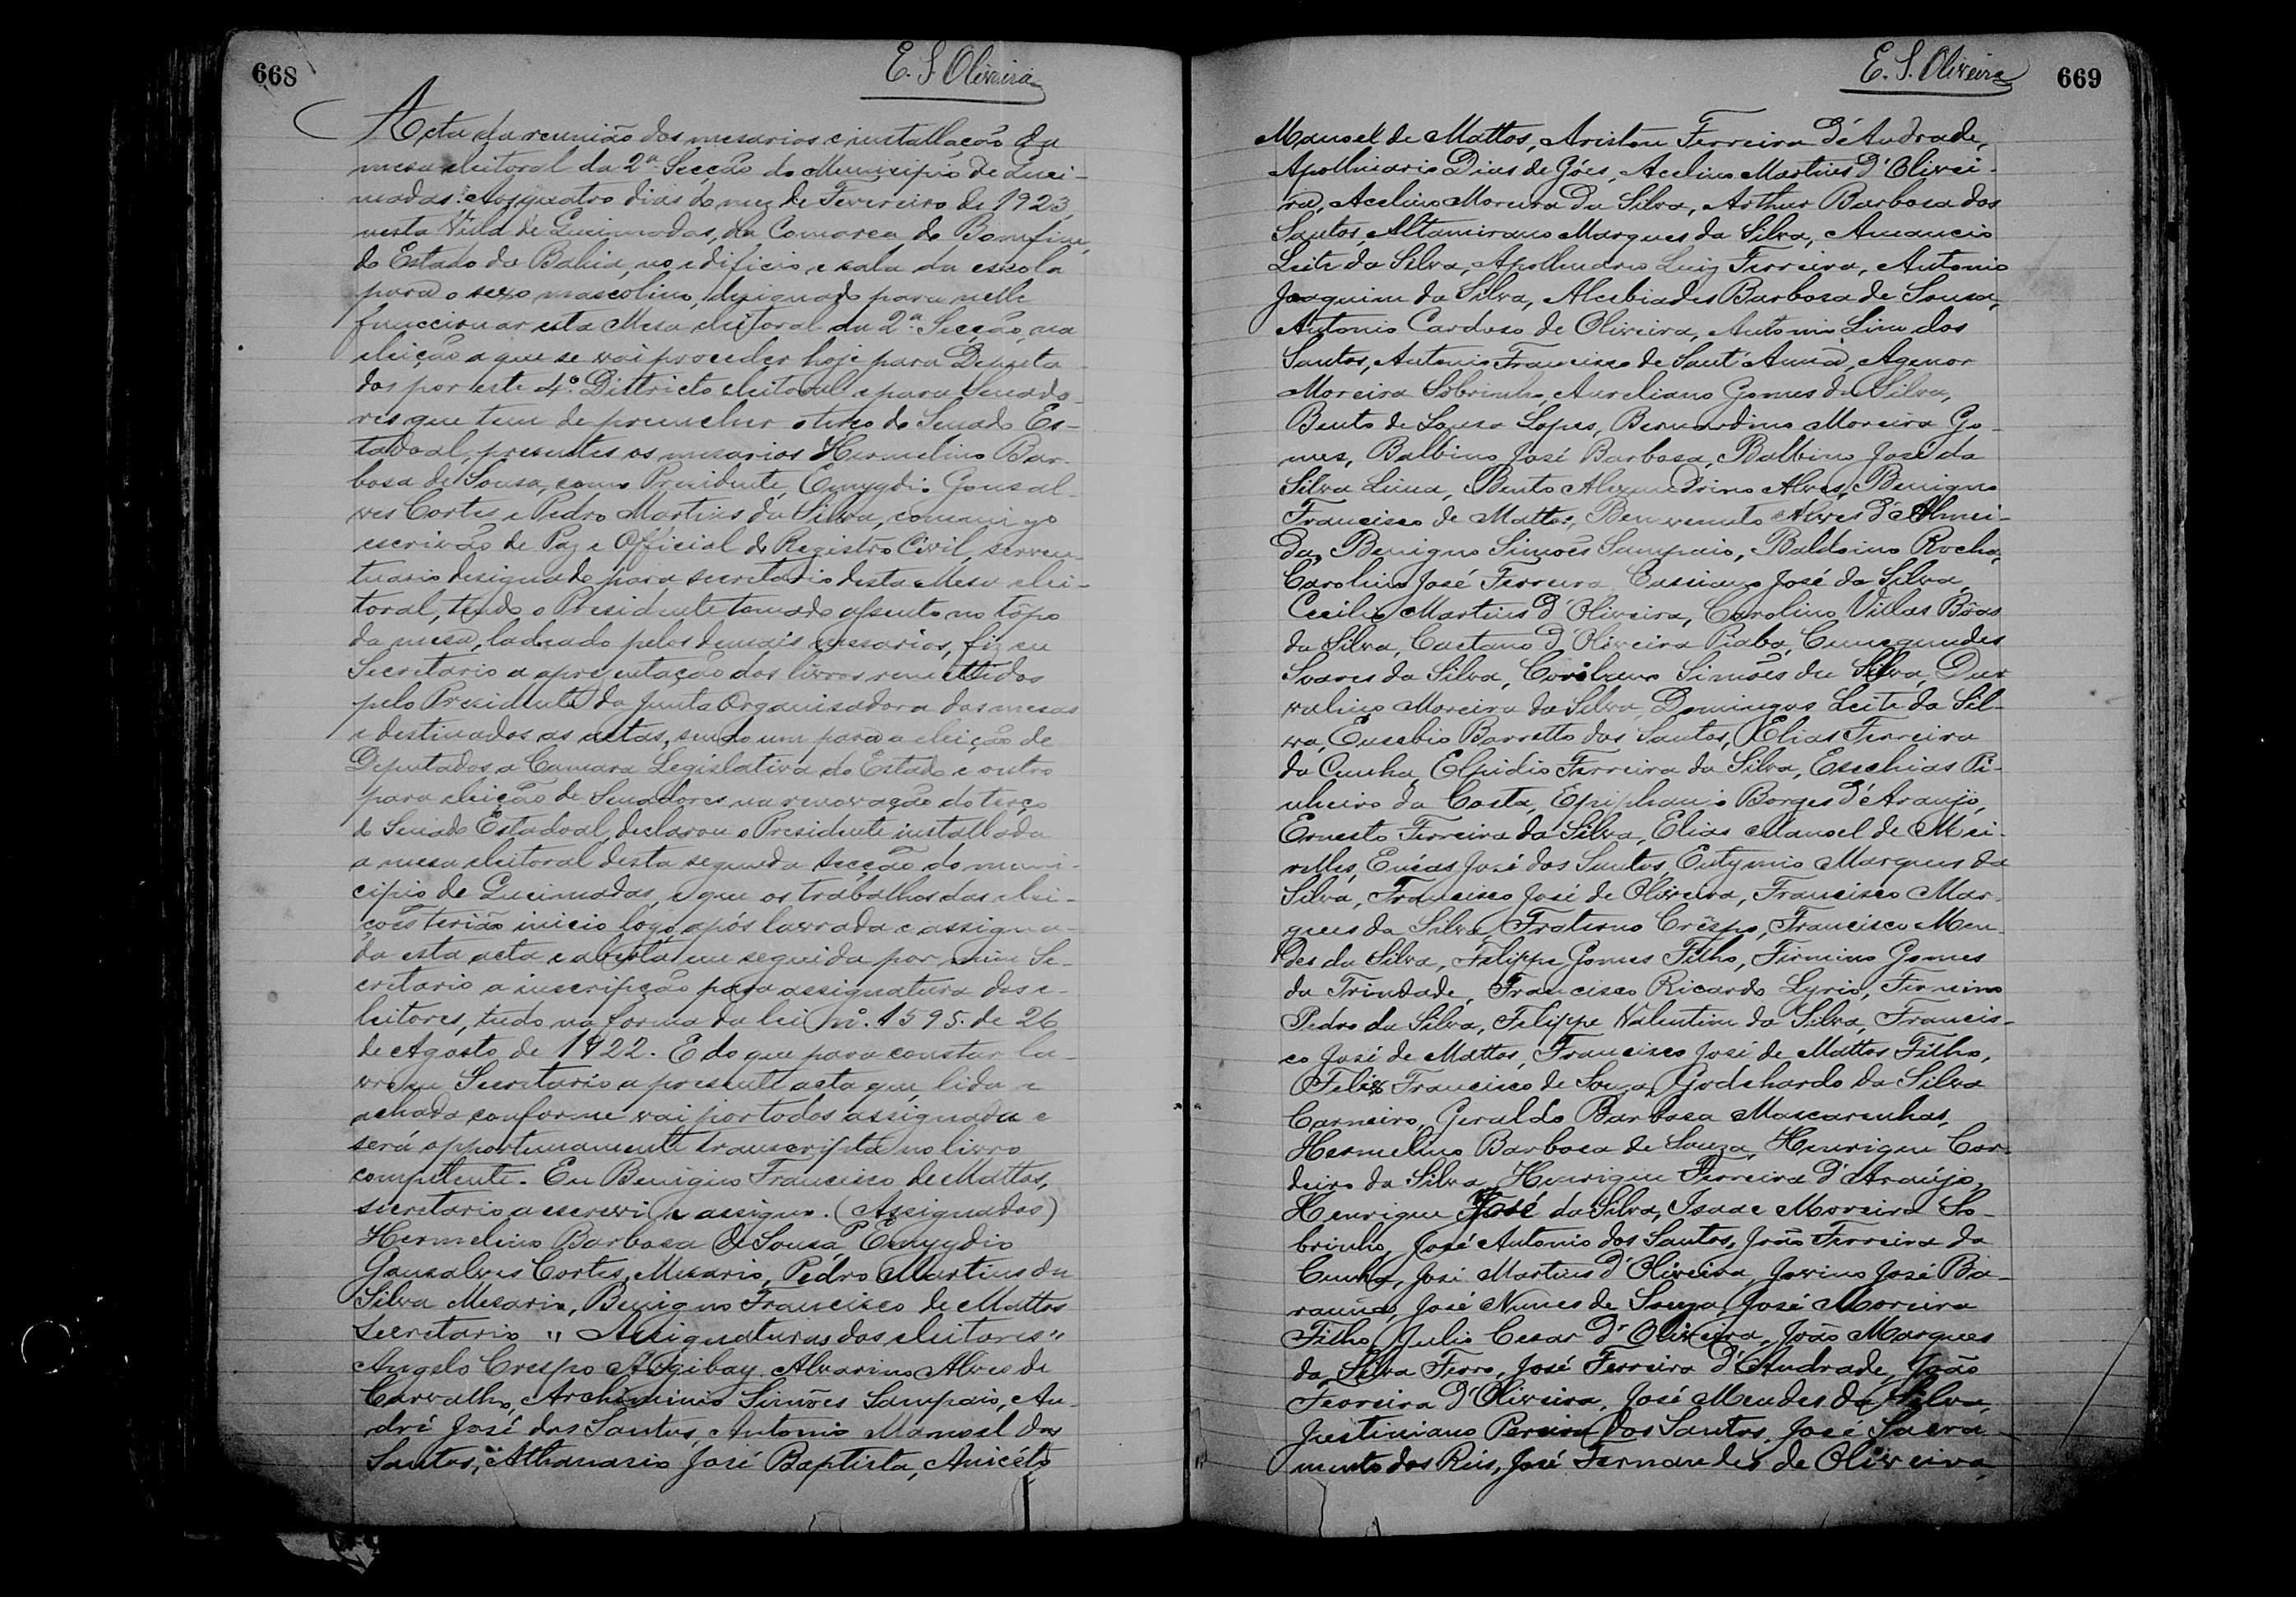 668
E. S. Oliveira
Acta da reunião dos mesarios e installação da
mesa eleitoral da 2ª Secção do Municipio de Quei-
madas: Aos quatro dias do mez de Fevereiro de 1923,
nesta Villa de Queimadas, da Comarca do Bomfim,
do Estado da Bahia, no edificio e sala da escola
para o sexo mascolino, designado para nelle
funccionar esta Mesa eleitoral da 2ª Secção, na
eleição a que se vai proceder hoje para Deputa-
dos por este 4º Districto eleitoral e para Senado-
res que tem de preencher o terço do Senado Es-
tadoal, presentes os mesarios Hermelino Bar-
bosa de Sousa, como Presidente, Emygdio Gonsal-
ves Cortes e Pedro Martins da Silva, comigo
escrivão de Paz e Official do Registro Civil, serven-
tuario designado para secretario desta Mesa elei-
toral, tendo o Presidente tomado assento no tôpo
da mesa, ladeado pelos demais mesarios, fiz eu
Secretario a apresentação dos livros remettidos
pelo Presidente da Junta Organisadora das mesas
e destinados as actas, sendo um para a eleição de
Deputados a Camara Legislativa do Estado e outro
para eleição de Senadores na renovação do terço
do Senado Estadoal, declarou o Presidente installada
a mesa eleitoral desta segunda secção do muni-
cipio de Queimadas, e que os trabalhos das elei-
ções terião inicio logo após lavrada e assigna-
da esta acta e aberta em seguida por mim Se-
cretario a inscripção para assignatura dos e-
leitores, tudo na forma da lei nº. 1595. de 26
de Agosto de 1922. E do que para constar la-
vrei eu Secretario a presente acta que, lida e
achada conforme vai por todos assignada e
será opportunamente transcripta no livro
competente. Eu Benigno Francisco de Mattos,
secretario a escrevi e assigno. (Assignados)
Hermelino Barbosa de Sousa P. Emygdio
Gonsalves Cortes, Mesario, Pedro Martins da
Silva Mesario, Benigno Francisco de Mattos
Secretario " Assignaturas dos eleitores "
Angelo Crespo Argibay. Alvarino Alves de
Carvalho, Archiminio Simões Sampaio, An-
dré José dos Santos, Antonio Manoel dos
Santos, Athanasio José Baptista, Anicéto
E. S. Oliveira
669
Manoel de Mattos, Ariston Ferreira D'Andrade,
Apollinario Dias de Góes, Acelino Martins D'Olivei-
ra, Acelino Moreira da Silva, Arthur Barbosa dos
Santos, Altamirano Marques da Silva, Amancio
Leite da Silva, Apollinario Luiz Ferreira, Antonio
Joaquim da Silva, Alcebiades Barbosa de Sousa,
Antonio Cardoso de Oliveira, Antonio Lino dos
Santos, Antonio Francisco de Sant'Anna, Agenor
Moreira Sobrinho, Aureliano Gomes da Silva,
Bento de Sousa Lopes, Bernardino Moreira Go-
mes, Balbino José Barbosa, Balbino José da
Silva Lima, Bento Alexandrino Alves, Benigno
Francisco de Mattos, Benvenuto Alves D'Almei-
da, Benigno Simões Sampaio, Baldoino Rocha,
Carolino José Ferreira, Cassiano José da Silva,
Cecilio Martins D'Oliveira, Carolino Villas Bôas
da Silva, Caetano D'Oliveira Piaba, Cunegundes
Soares da Silva, Simões da Silva, Dur
valino Moreira da Silva, Domingos Leite da Sil-
va, Eusebio Barretto dos Santos, Elias Ferreira
da Cunha, Elpidio Ferreira da Silva, Esechias Pi-
nheiro da Costa, Epiphanio Borges D'Araujo,
Ernesto Ferreira da Silva, Elias Manoel de Mei-
relles, Enéas José dos Santos, Eutymio Marques da
Silva, Francisco José de Oliveira, Francisco Mar-
ques da Silva, Fraterno Crespo, Francisco Men-
des da Silva, Felippe Gomes Filho, Firmino Gomes
da Trindade, Francisco Ricardo Lyrio, Firmino
Pedro da Silva, Felippe Valentim da Silva, Francis-
co José de Mattos, Francisco José de Mattos Filho,
Felix Francisco de Souza, Godchardo da Silva
Carneiro, Geraldo Barbosa Mascarenhas,
Hermelino Barbosa de Souza, Henrique Cor-
deiro da Silva, Henrique Ferreira D'Araújo,
Henrique José da Silva, Isaac Moreira So-
brinho, José Antonio dos Santos, João Ferreira da
Cunha, José Martins D'Oliveira, Jovino José Ba-
raúna, José Nunes de Souza, José Moreira
Filho, Julio Cesar D'Oliveira, João Marques
da Silva Ferro, José Ferreira D'Andrade, João
Ferreira D'Oliveira, José Mendes da Silva,
Justiniano Pereira dos Santos, José Sacra-
mento dos Reis, José Fernandes de Oliveira,